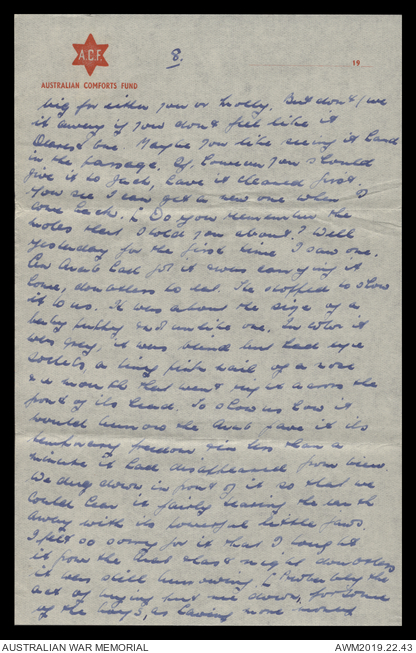 A.C.F.
8.
19
AUSTRALIAN COMFORTS FUND
big for either you or Molly. But don't give
it away if you don't feel like it
Dearest one. Maybe you like seeing it hard
in the passage. If, however you should
give it to Jack, have it cleaned first.
You see I can get a new one when I
come back. [ Do you remember the
moles that I told you about? Well
yesterday for the first time I saw one.
An Arab had got it & was carrying it
home, doubtless to eat. He stopped to show
it to us. It was about the size of a
baby puppy & not unlike one. In color it
was grey, it was blind but had eye
sockets, a tiny pink nail of a nose
& a mouth that went right across the
front of its head. To show us how it
would burrow the Arab gave it its
temporary freedom & in less than a
minute it had disappeared from view.
We dug down in front of it so that we
could hear it fairly tearing the earth
away with its powerful little paws.
I felt so sorry for it that I bought
it from the Arab & last night doubtless
it was still burrowing. [ Probably the
act of buying put me down, for some
of the boys, as having more money
AUSTRALIAN WAR MEMORIAL
AWM2019.22.43